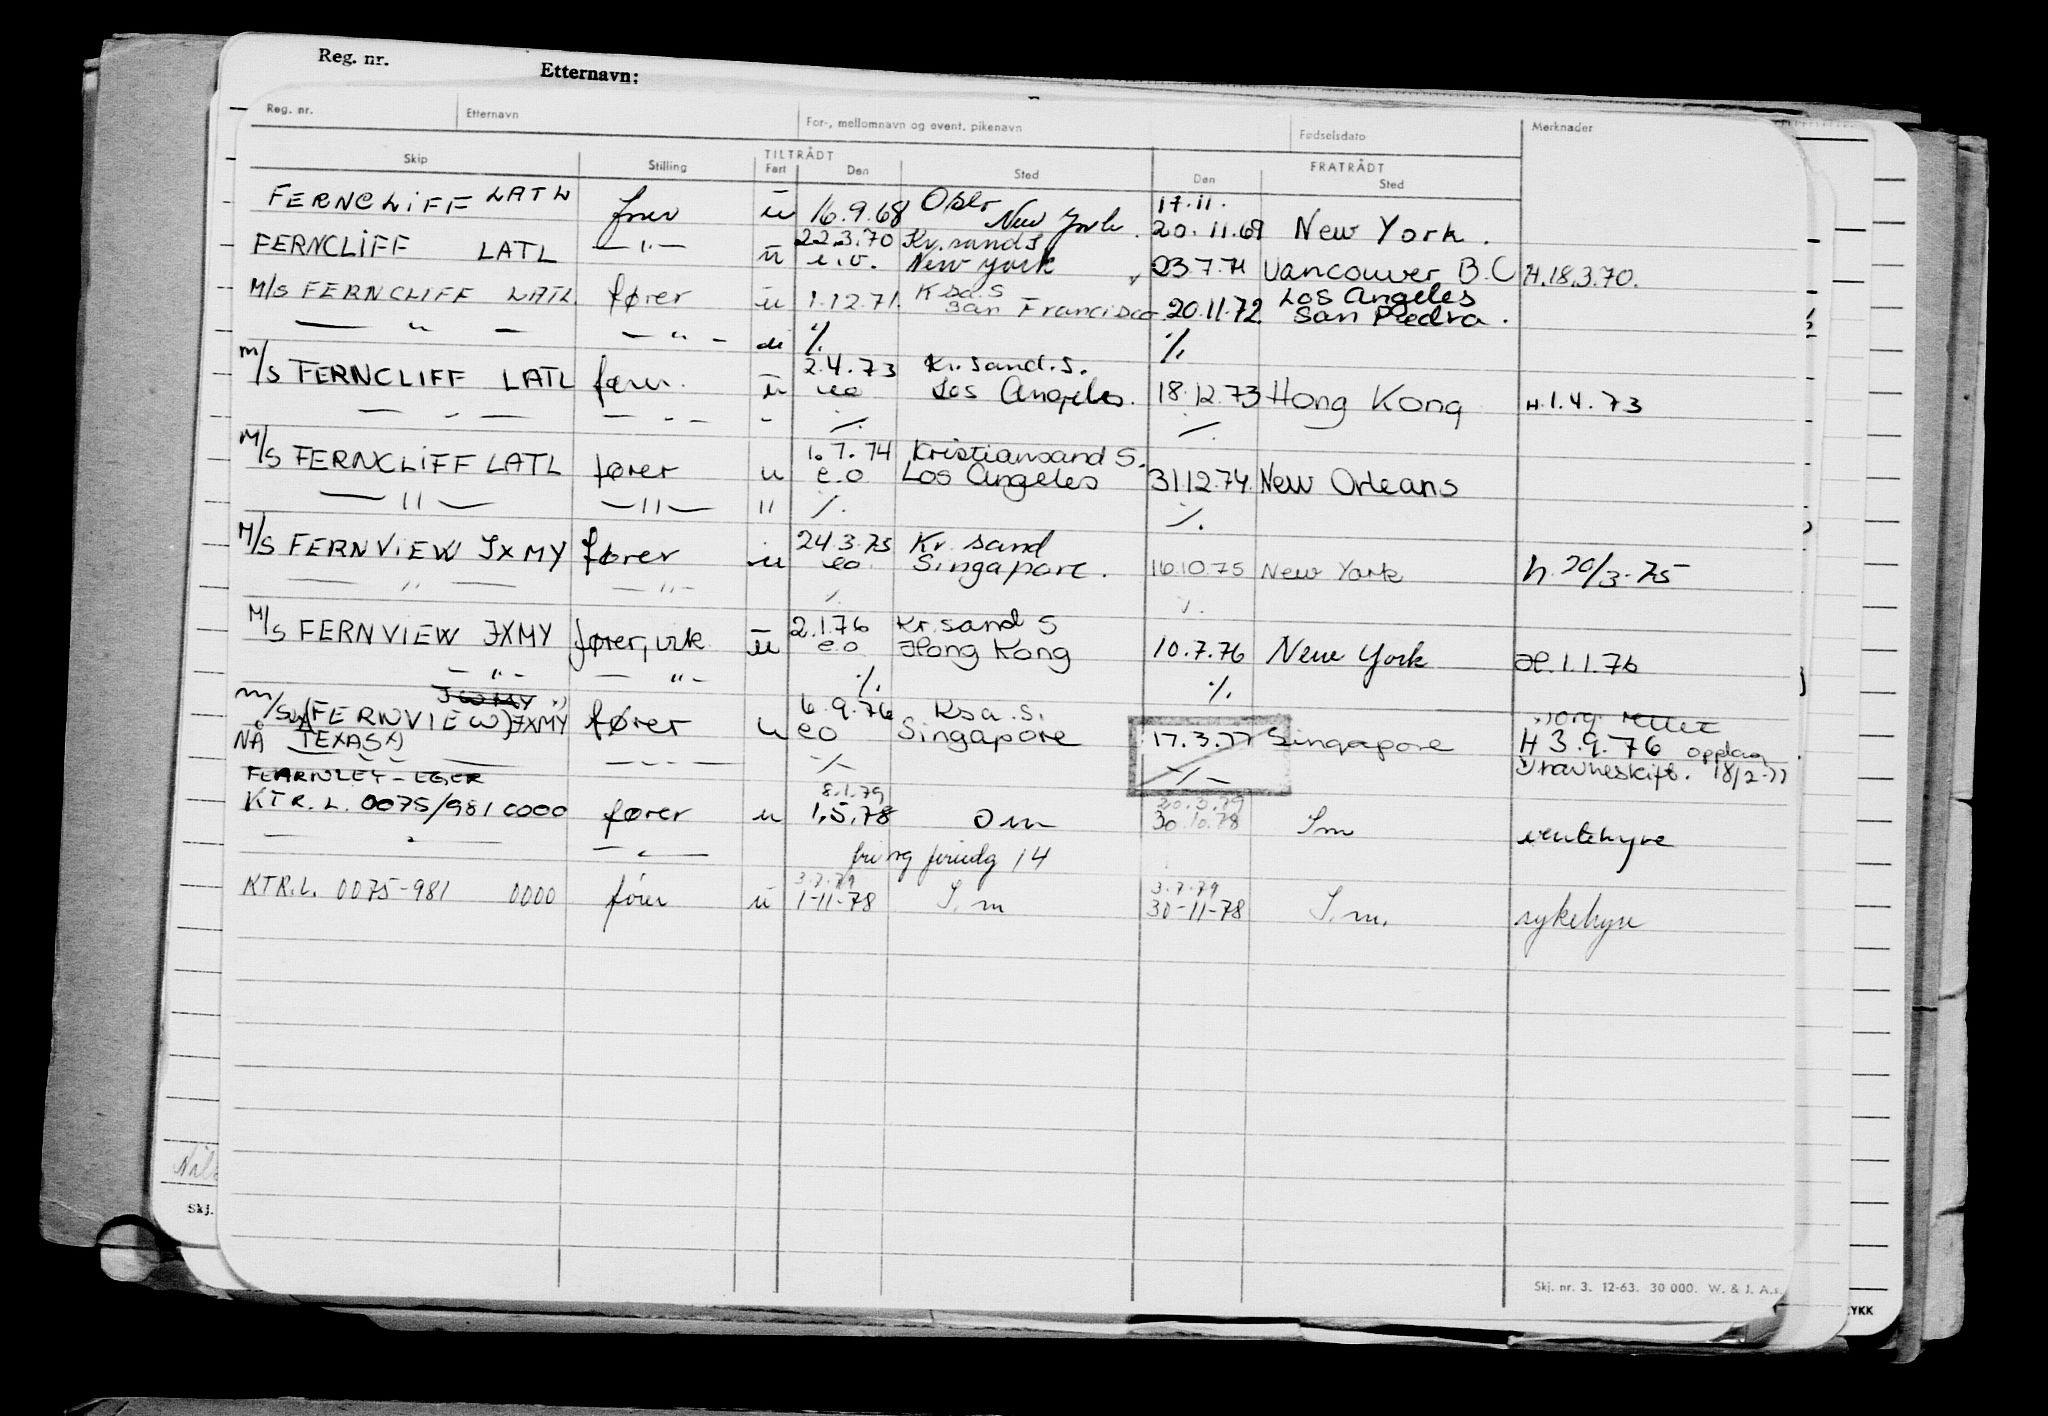 Reg. nr. Etternavn:
Reg. nr. Etternavn For-, mellomnavn og event. pikenavn Fødselsdato Merknader
Skip Stilling TILTRÅDT FRATRÅDT
Fart Den Sted Den Sted
FERNCLIFF LATL fører u 16.9.68 Oslo New York. 17.11. 20.11.69 New York.
FERNCLIFF LATL —"— u 22.3.70 Kr.sand S
e.o. New York 23.7.71 Vancouver B.C H.18.3.70.
M/S FERNCLIFF LATL fører u 1.12.71. Ksa.S San Francisco 20.11.72. Los Angeles San Pedro.
— " — — " — du % %
m/s FERNCLIFF LATL fører. u 2.4.73 Kr.sand.S.
eo Los Angeles. 18.12.73 Hong Kong H.1.4.73
— " — — " — " % %
M/S FERNCLIFF LATL fører u 1.7.74 Kristiansand S.
e.o Los Angeles 31.12.74. New Orleans
— " — — " — " % %
M/S FERNVIEW JXMY fører u 24.3.75 Kr. sand
eo Singapore. 16.10.75 New York h. 20/3-75
— " — — " — % %
M/S FERNVIEW JXMY fører, vik u 2.1.76 Kr.sand S
e.o Hong Kong 10.7.76 New York H.1.1.76
— " — — " — % %
m/s (FERNVIEW) JXMY fører u 6.9.76 Ksa.S.
eo Singapore 17.3.77 Singapore H 3.9.76
NÅ TEXAS — — % % 18/2-77
FEARNLEY - EGER
KTR.L. 0075/981 0000 fører u 8.1.79 1.5.78 Om 20.3.79 30.10.78 Im ventehyre
— " — — " — 14
KTR.L. 0075-981 0000 fører u 3.7.79 1-11-78 I.m 3.7.79 30-11-78 I.m. sykehyre
Skj.
Skj. nr. 3. 12-63. 30 000. W. & J. A.s.
YKK